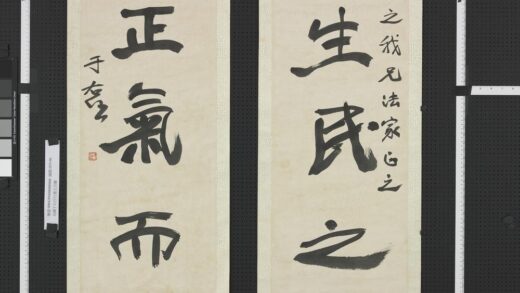 之我兄法家正之
生民之
正氣而
于右任